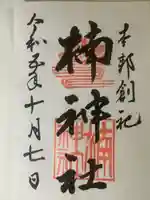 本邦創祀
楠神社
令和五年十月七日